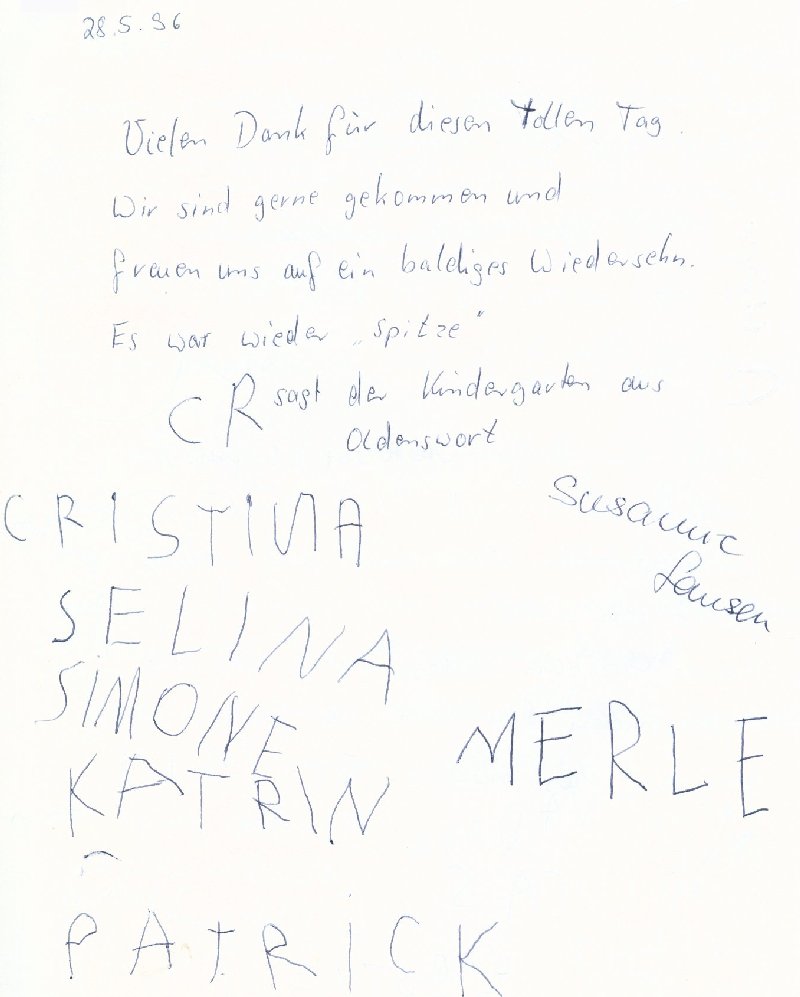 28.5.96
Vielen Dank für diesen tollen Tag.
Wir sind gerne gekommen und
freuen uns auf ein baldiges Wiedersehn.
Es war wieder „spitze"
CR sagt der Kindergarten aus
Oldenswort
Susanne
CRISTINA
SELINA
SIMONE
MERLE
KATRIN
PATRICK